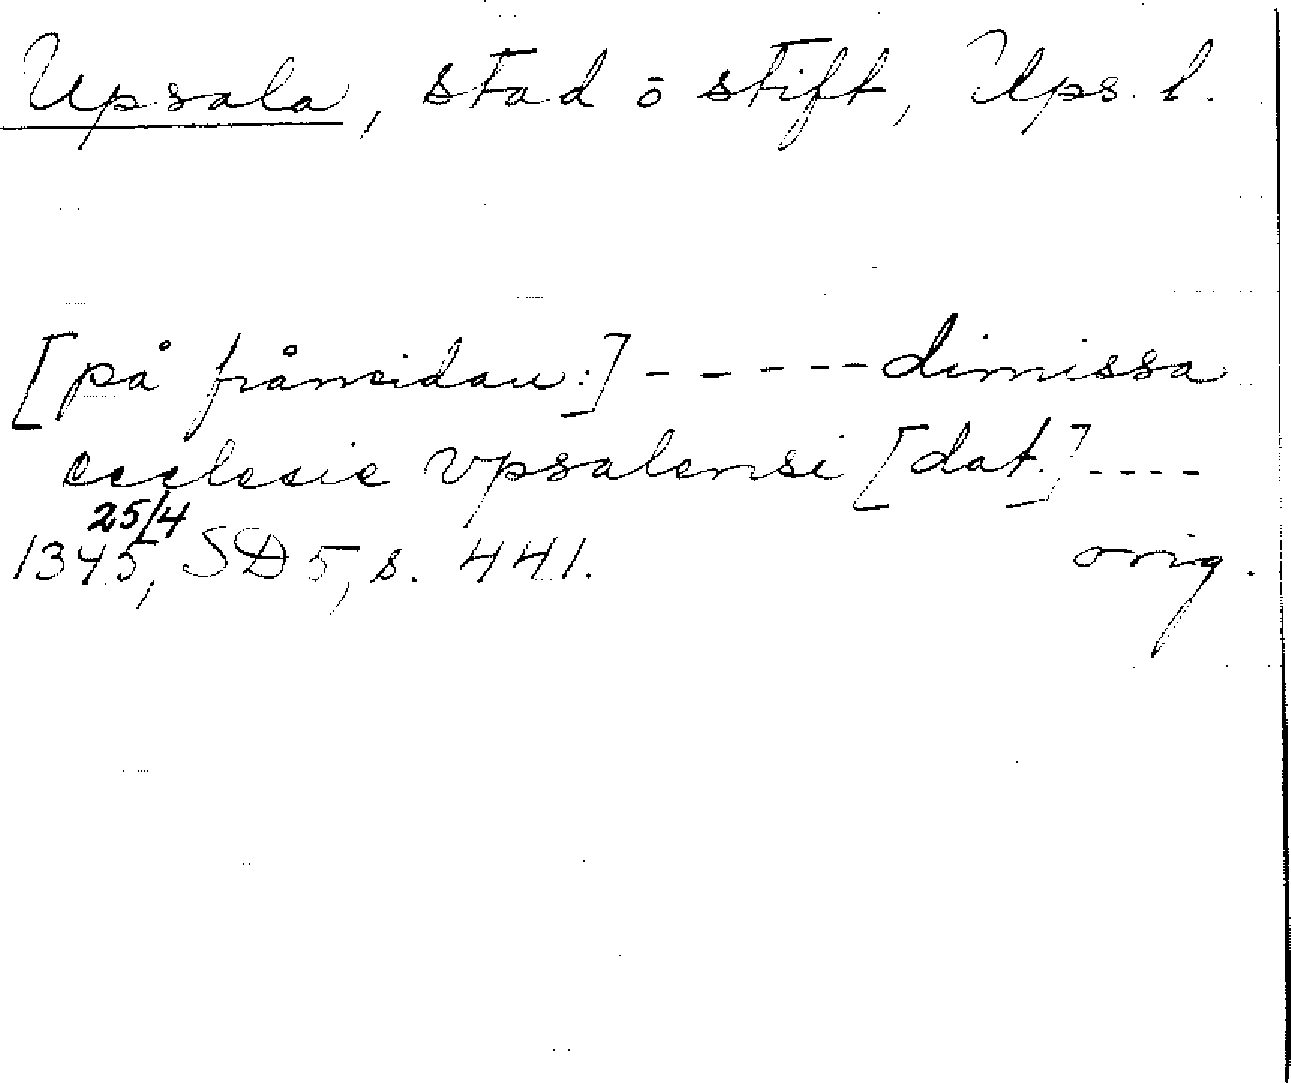 Upsala, stad o stift, Ups. l.
[på frånsidan:] - - - - - dimissa
ecclesie vpsalensi [dat.] - - - -
25/4
1345, SD 5, s. 441. orig.